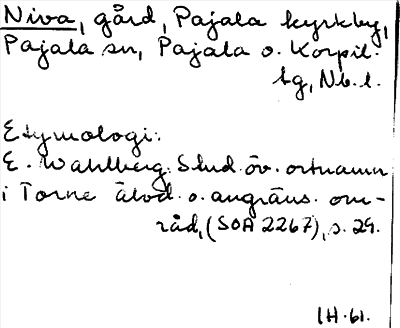 Niva, gård, Pajala kyrkby,
Pajala sn, Pajala o. Korpil.
tg, Nb. l.
Etymologi:
E. Wahlberg. Stud. öv. ortnamn
i Torne älvd. o. angräns. om-
råd, (SOA 2267), s. 29.
IH. 61.